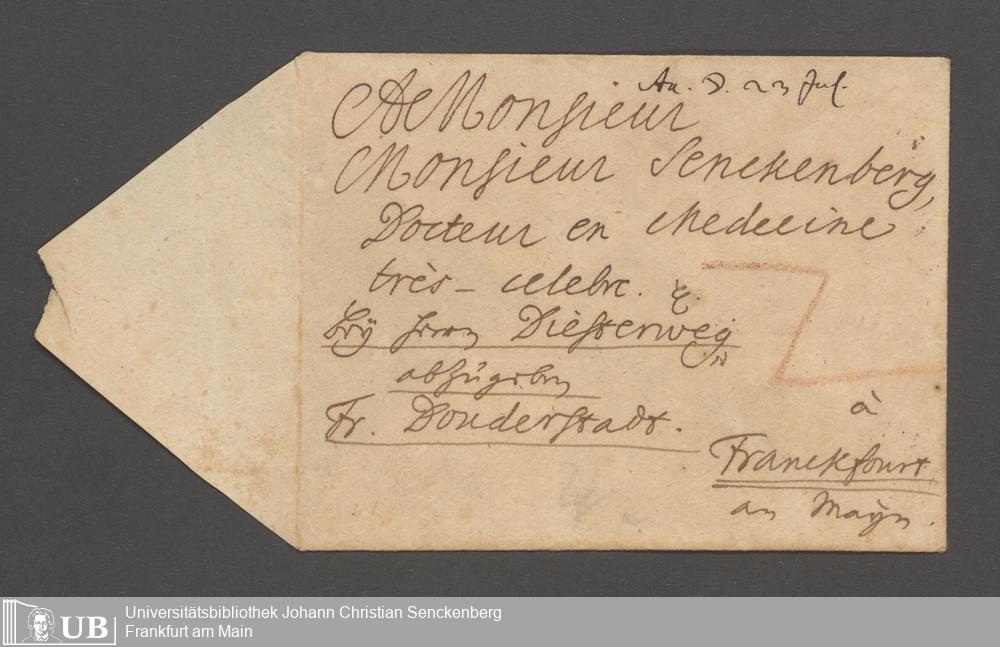 An. D. 23 Jul.
A Monsieur
Monsieur Senckenberg,
Docteur en Medecine
très-celebre. &.
bey Herrn Diesterweg
abzugeben
Fr. Douderstadt.
à
Franckfourt
an Mayn.
UB
Universitätsbibliothek Johann Christian Senckenberg
Frankfurt am Main